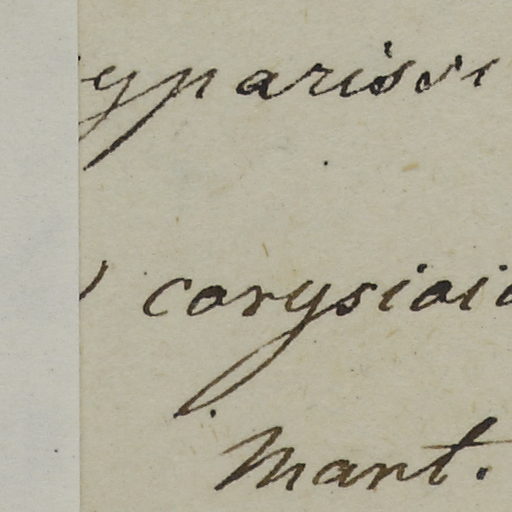 yparissi
corysiaia
Mant.